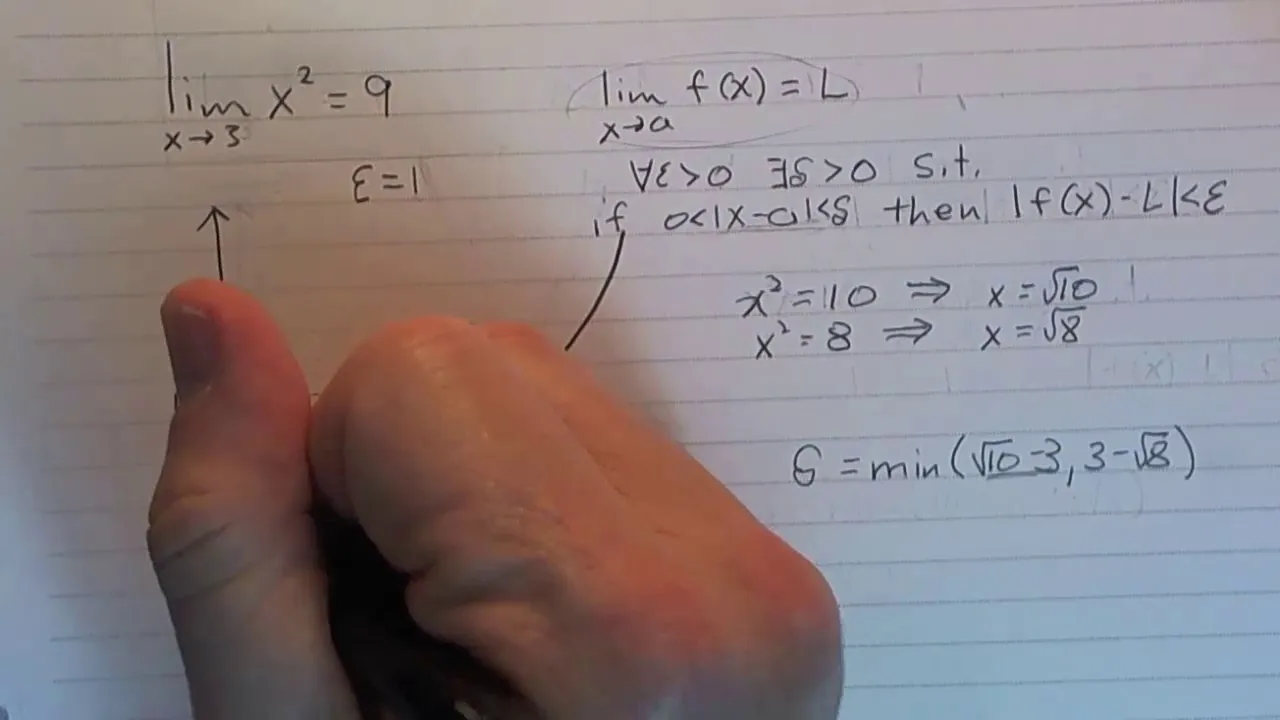 lim x² = 9
x→3
ε=1
lim f(x) = L
x→a
∀ε>0 ∃δ>0 s.t.
if 0<|x-a|<δ then |f(x)-L|<ε
x²=10 ⇒ x=√10
x²=8 ⇒ x=√8
δ = min(√10-3, 3-√8)